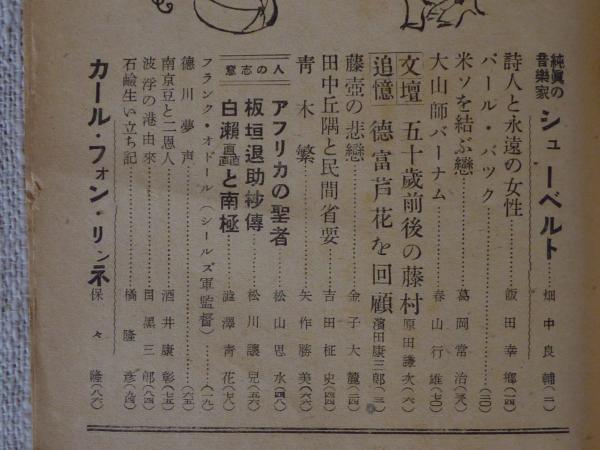 純眞の音樂家 シューベルト……畑中良輔(二)
詩人と永遠の女性……飯田幸郷(一四)
パール・バック……(三〇)
米ソを結ぶ戀……葛岡常治(三八)
大山師バーナム……春山行雄(七〇)
文壇 五十歲前後の藤村 原田謙次(六)
追憶 德富芦花を回顧 濱田康三郎(三)
藤壺の悲戀……金子大麓(二四)
田中丘隅と民間省要……吉田柾史(四四)
靑木繁……矢作勝美(六六)
意志の人 アフリカの聖者……松山思水(四八)
板垣退助紗傳……松川讓兒(五六)
白瀨中尉と南極……澁澤靑花(七八)
フランク・オドール(シールズ軍監督)……(一九)
德川夢声……(六五)
南京豆と二恩人……酒井康彰(七五)
波浮の港由來……目黑三郞(八四)
石鹼生い立ち記……橘隆彥(九四)
カール・フォン・リンネ 保々隆(八六)